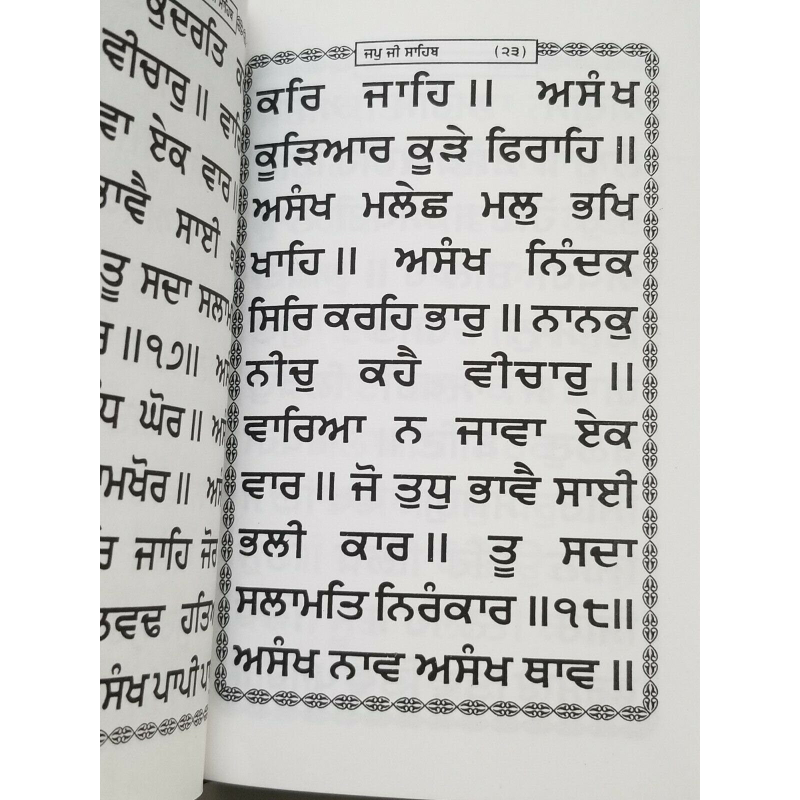 ਕੁਦਰਤਿ
ਵੀਚਾਰੁ॥
ਵਾ ਏਕ ਵਾਰ॥
ਭਾਵੈ ਸਾਈ
ਤੂ ਸਦਾ ਸਲਾਮ
॥੧੭॥
ਘੋਰ॥
ਮਖੋਰ॥
ਜਾਹਿ ਜੋਰ
ਲਵਢ ਹਤਿ
ਸੰਖ ਪਾਪੀ ਪਾ
ਜਪੁ ਜੀ ਸਾਹਿਬ (੨੩)
ਕਰਿ ਜਾਹਿ॥ ਅਸੰਖ
ਕੂੜਿਆਰ ਕੂੜੇ ਫਿਰਾਹਿ॥
ਅਸੰਖ ਮਲੇਛ ਮਲੁ ਭਖਿ
ਖਾਹਿ॥ ਅਸੰਖ ਨਿੰਦਕ
ਸਿਰਿ ਕਰਹਿ ਭਾਰੁ॥ ਨਾਨਕੁ
ਨੀਚੁ ਕਹੈ ਵੀਚਾਰੁ॥
ਵਾਰਿਆ ਨ ਜਾਵਾ ਏਕ
ਵਾਰ॥ ਜੋ ਤੁਧੁ ਭਾਵੈ ਸਾਈ
ਭਲੀ ਕਾਰ॥ ਤੂ ਸਦਾ
ਸਲਾਮਤਿ ਨਿਰੰਕਾਰ॥੧੮॥
ਅਸੰਖ ਨਾਵ ਅਸੰਖ ਥਾਵ॥